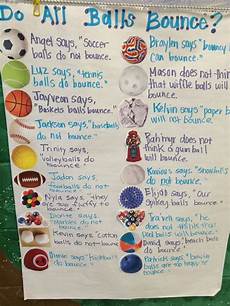 Do All Balls Bounce?
Angel says, "soccer
balls do not bounce.
Luz says, "tennis
balls do bounce."
Jayveon says,
"Baskets balls bounce."
Jackson says, "baseballs
do not bounce.
Trinity says,
volleyballs do
bounce.
Jadon says,
footballs do not
bounce.
Nyla says, they
are too fluffy to
bounce.
says
marbles do not
bounce.
Kevin says, "cotton
balls do not bounce
says, "kickballs
do bounce.
Braylen says, "bouncy
can bounce.
Mason does not think
that wiffle balls do
bounce.
Kelvin says, "paper
will not bounce.
does not
think a gum ball
will bounce.
says, "snowballs
do not bounce.
Elijah says, "Our
spikey balls bounce.
says, "he does
not think
David says, "beach balls
do bounce.
Patrick says,
balls do not
bounce.